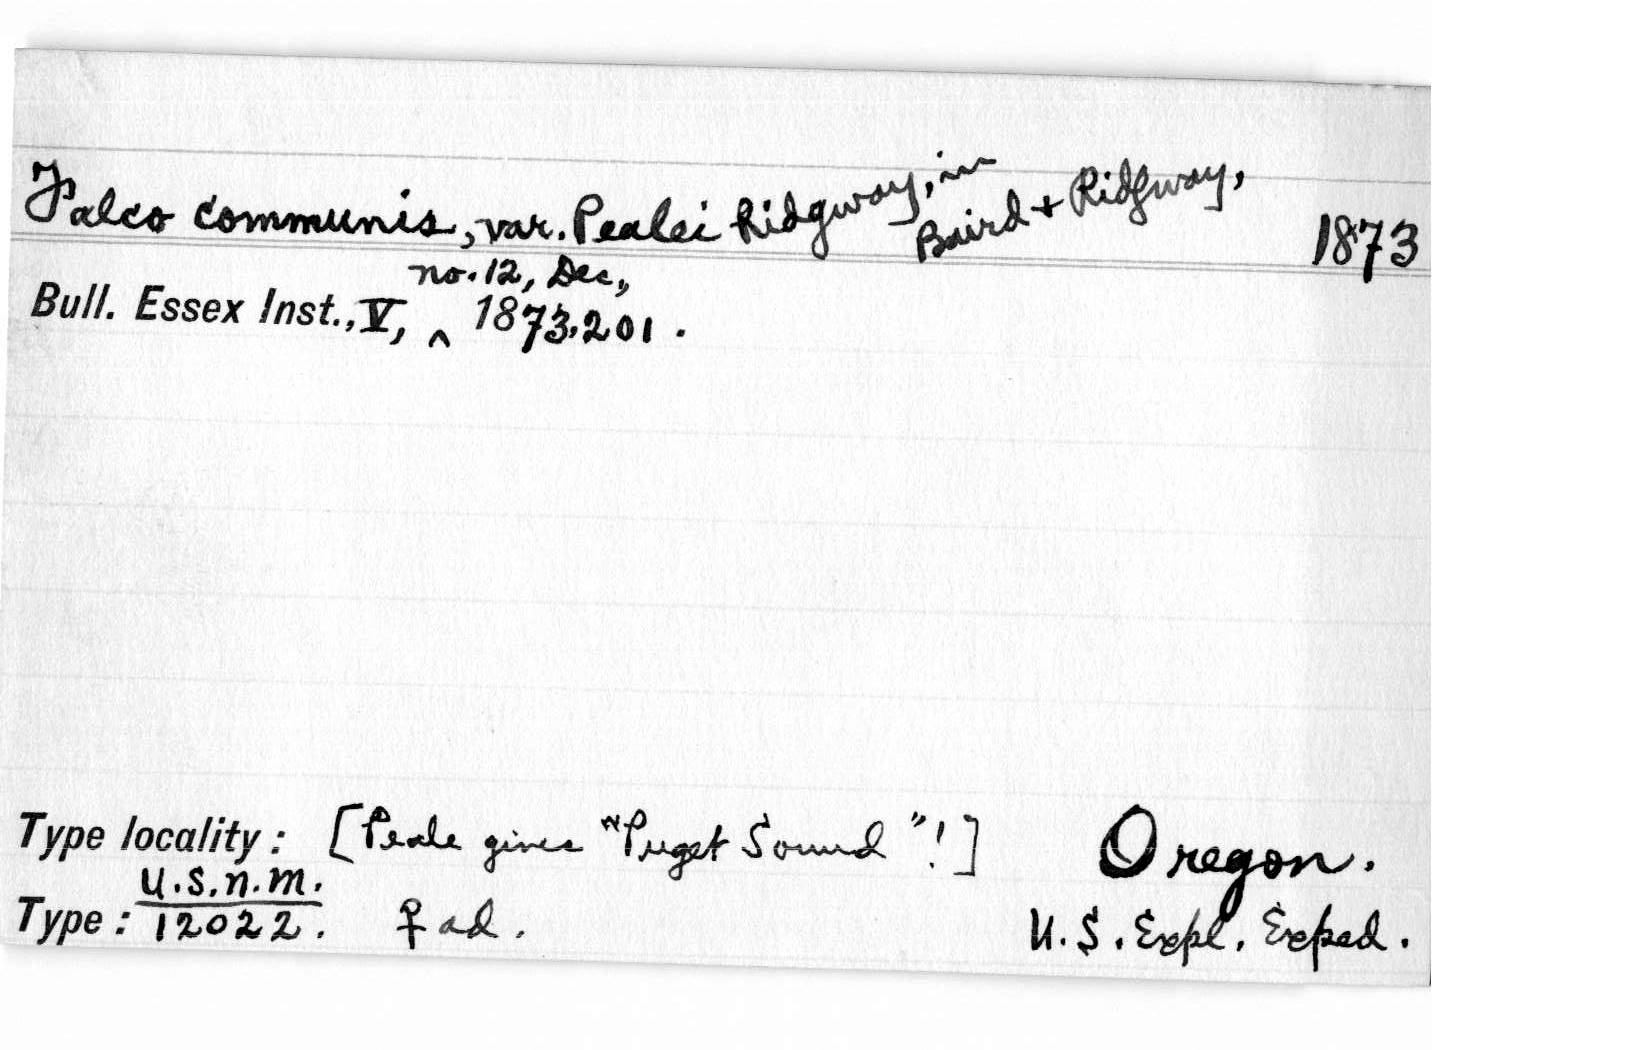 Falco communis, var. Pealei Ridgway, in Baird + Ridgway, 1873
Bull. Essex Inst., V, ^ no. 12, Dec., 1873, 201.
Type locality: [Peale gives "Puget Sound"!] Oregon.
Type: U.S.N.M. 12022. ♀ ad. U.S. Expl. Exped.